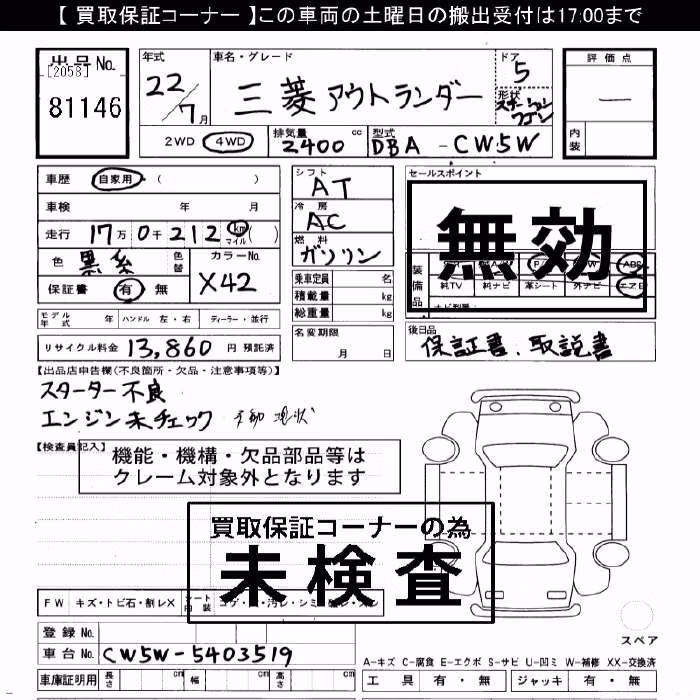 【 買取保証コーナー 】この車両の土曜日の搬出受付は17:00まで
出品No. [2058] 81146
年式 22/7月
車名・グレード 三菱 アウトランダー
ドア 5
形状 ステーションワゴン
評価点 一
内装
2WD 4WD 排気量 2400 cc 型式 DBA-CW5W
車歴 自家用 (
車検 年 月
走行 17万0千212 km マイル
色 黒系 色替 カラーNo. X42
保証書 有・無
シフト AT
冷房 AC
燃料 ガソリン
乗車定員 名
積載量 kg
総重量 kg
セールスポイント
無効
装備品 ABS
純TV 純ナビ 革シート 外ナビ エアB
モデル年式 年 ハンドル 左・右 ディーラー・並行
リサイクル料金 13,860 円 預託済
名変期限 月 日
後日品 保証書、取説書
【出品店申告欄(不良箇所・欠品・注意事項等)】
スターター不良
エンジン未チェック 現状
【検査員記入】
機能・機構・欠品部品等は
クレーム対象外となります
買取保証コーナーの為
未検査
FW キズ・トビ石・割レX シート内装
登録No.
車台No. CW5W-5403519
車庫証明用 長さ cm 幅 cm cm
スペア
A-キズ C-腐食 E-エクボ S-サビ U-凹ミ W-補修 XX-交換済
工具 有・無 ジャッキ 有・無